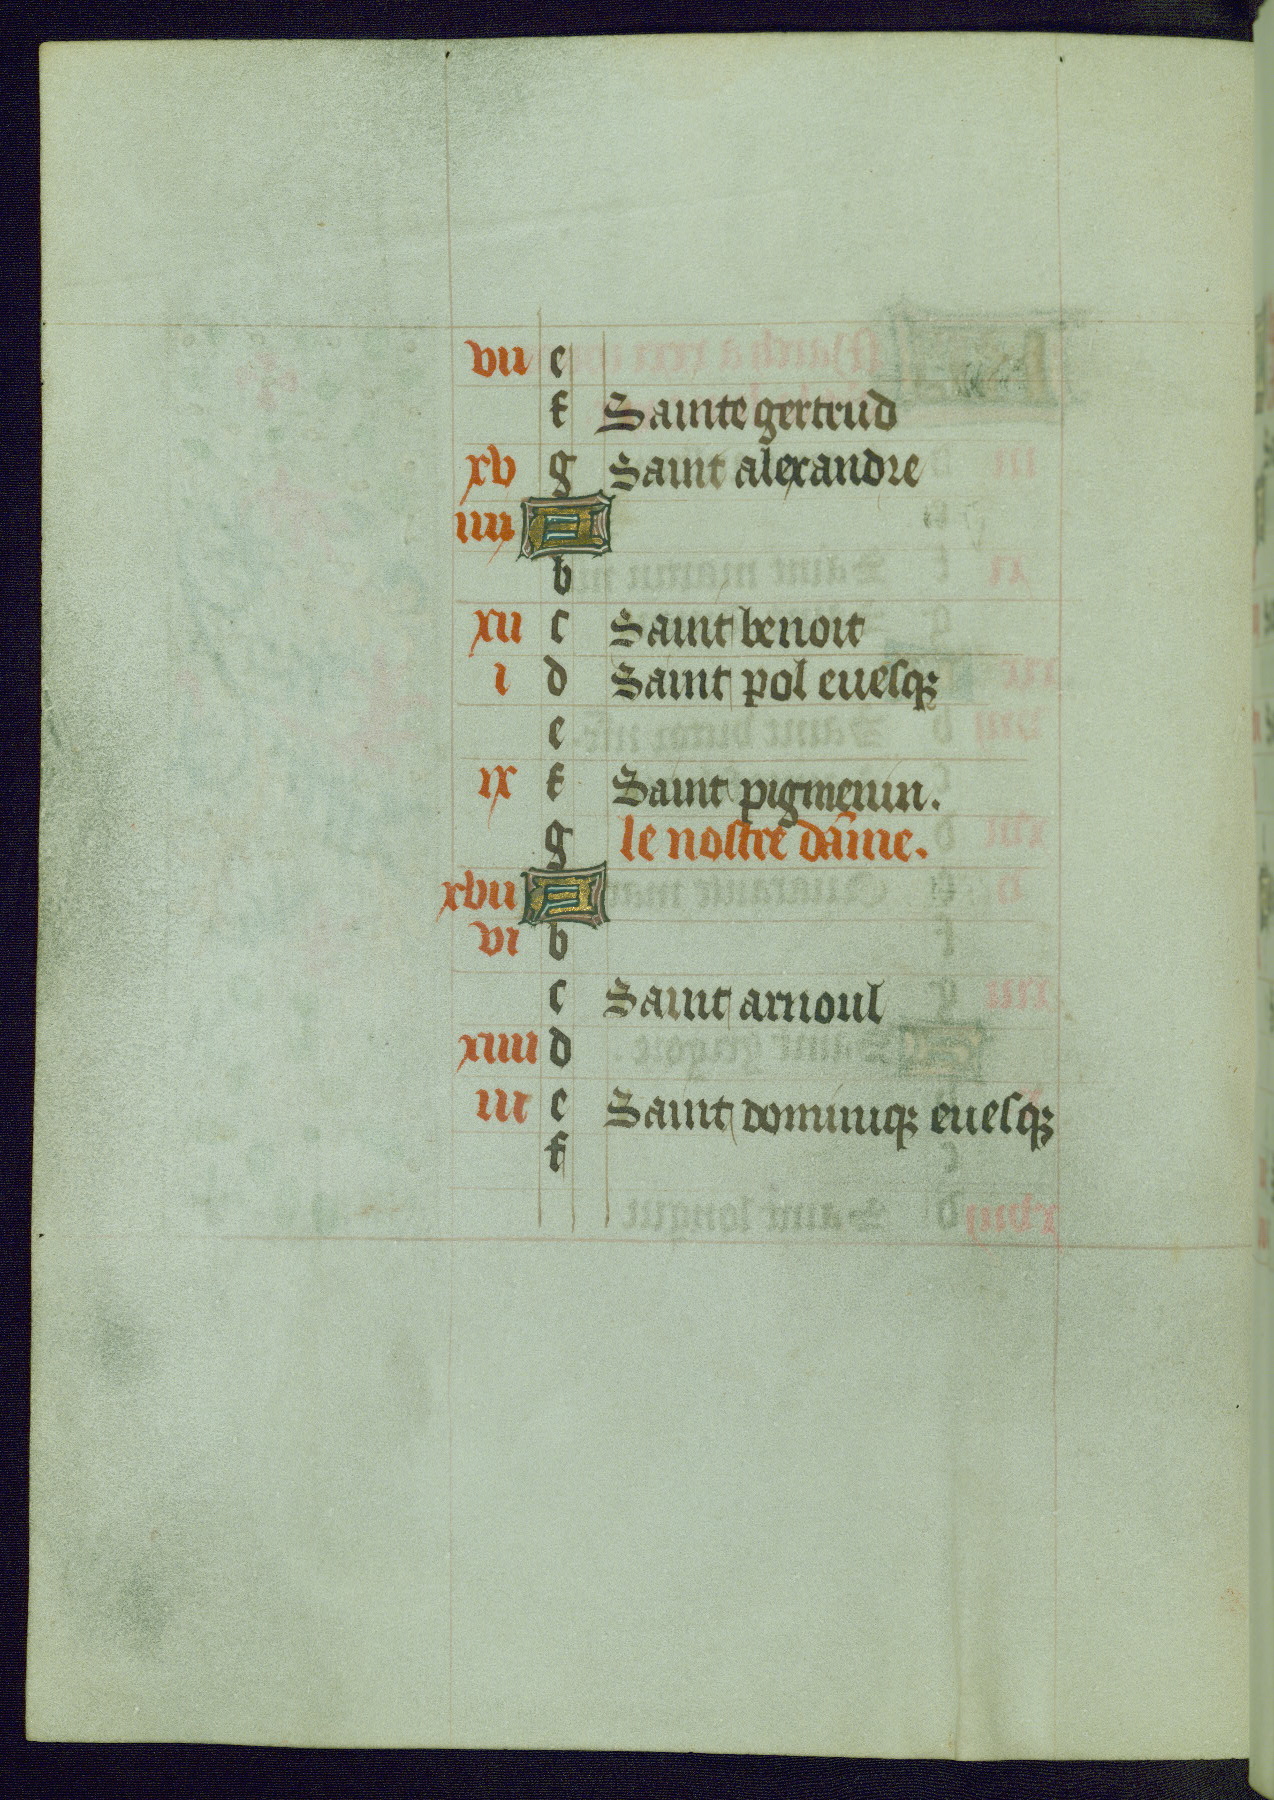 vii e
f Sainte gertrud
xv g Saint alexandre
iiii A
b
xii c Saint benoit
i d Saint pol euesq;
e
ix f Saint pigmenin.
g le nostre dame.
xvii A
vi b
c Saint arnoul
xiiii d
iii e Saint dominiq; euesq;
f